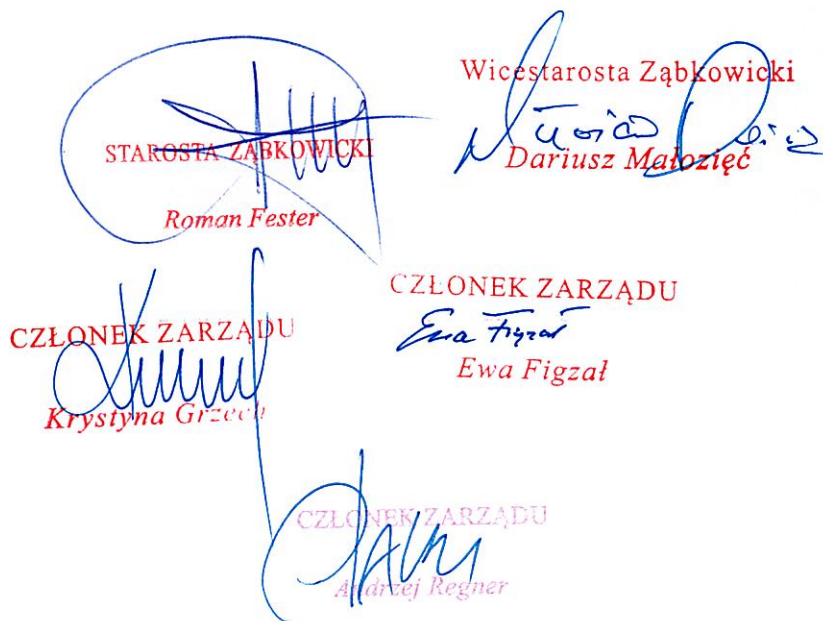 STAROSTA ZĄBKOWICKI
Roman Fester
Wicestarosta Ząbkowicki
Dariusz Małozięć
CZŁONEK ZARZĄDU
Krystyna Grzech
CZŁONEK ZARZĄDU
Ewa Figzał
Ewa Figzał
CZŁONEK ZARZĄDU
Andrzej Regner